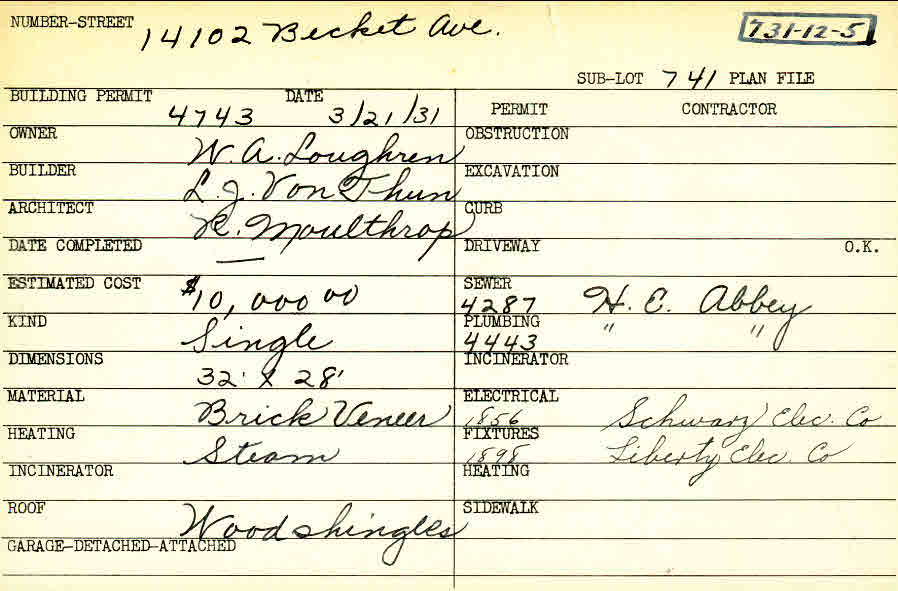 NUMBER-STREET 14102 Becket Ave. 731-12-5
SUB-LOT 741 PLAN FILE
BUILDING PERMIT 4743 DATE 3/21/31
PERMIT CONTRACTOR
OWNER W. A. Loughren
OBSTRUCTION
BUILDER L. J. Von Thun
EXCAVATION
ARCHITECT R. Moulthrop
CURB
DATE COMPLETED —
DRIVEWAY O.K.
ESTIMATED COST $10,000 00
SEWER 4287 H. E. Abbey
KIND Single
PLUMBING 4443 " "
DIMENSIONS 32' X 28'
INCINERATOR
MATERIAL Brick Veneer
ELECTRICAL 1856 Schwarz Elec. Co
HEATING Steam
FIXTURES 1898 Liberty Elec. Co
INCINERATOR
HEATING
ROOF Wood shingles
SIDEWALK
GARAGE-DETACHED-ATTACHED